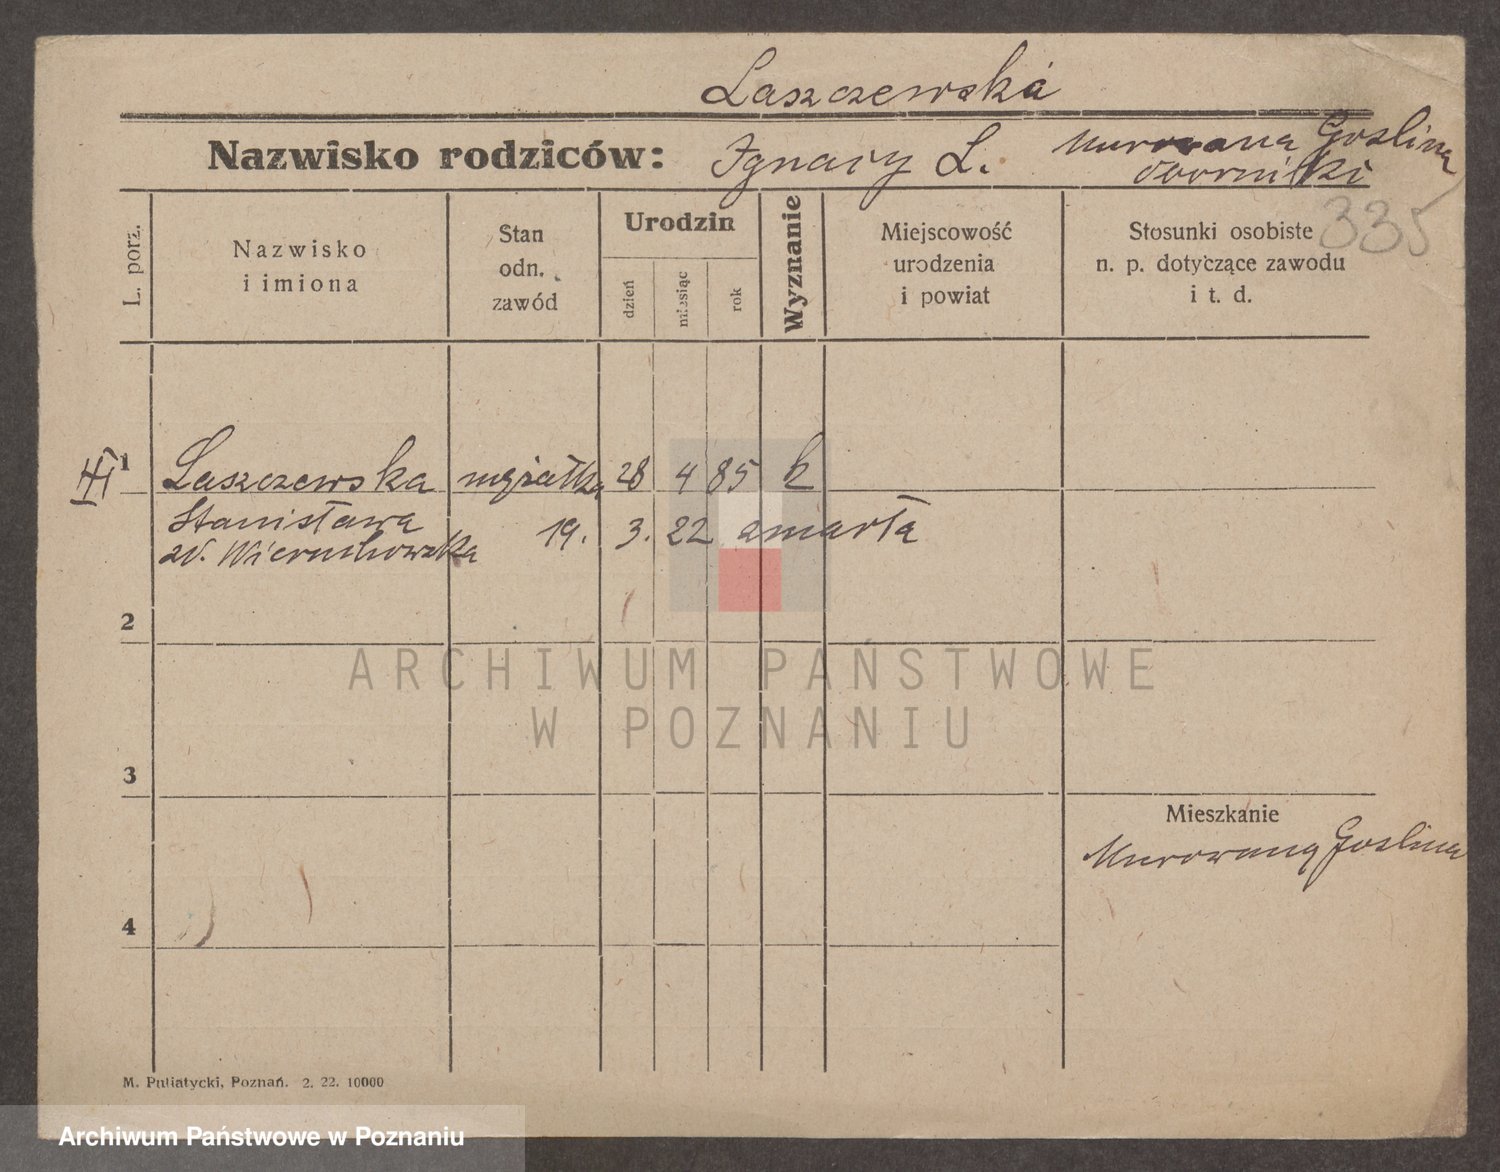 Laszczewska
Nazwisko rodziców: Ignacy L. Murowana Goslina
obornicki
335
L. porz.
Nazwisko
i imiona
Stan
odn.
zawód
Urodzin
dzień
miesiąc
rok
Wyznanie
Miejscowość
urodzenia
i powiat
Stosunki osobiste
n. p. dotyczące zawodu
i t. d.
III 1 Laszczewska mężatka 28 4 85 k
Stanisława 19. 3. 22 zmarła
zd. Wieruchowska
2
3
4
ARCHIWUM PAŃSTWOWE
W POZNANIU
Mieszkanie
Murowana Goslina
M. Putiatycki, Poznań. 2. 22. 10000
Archiwum Państwowe w Poznaniu